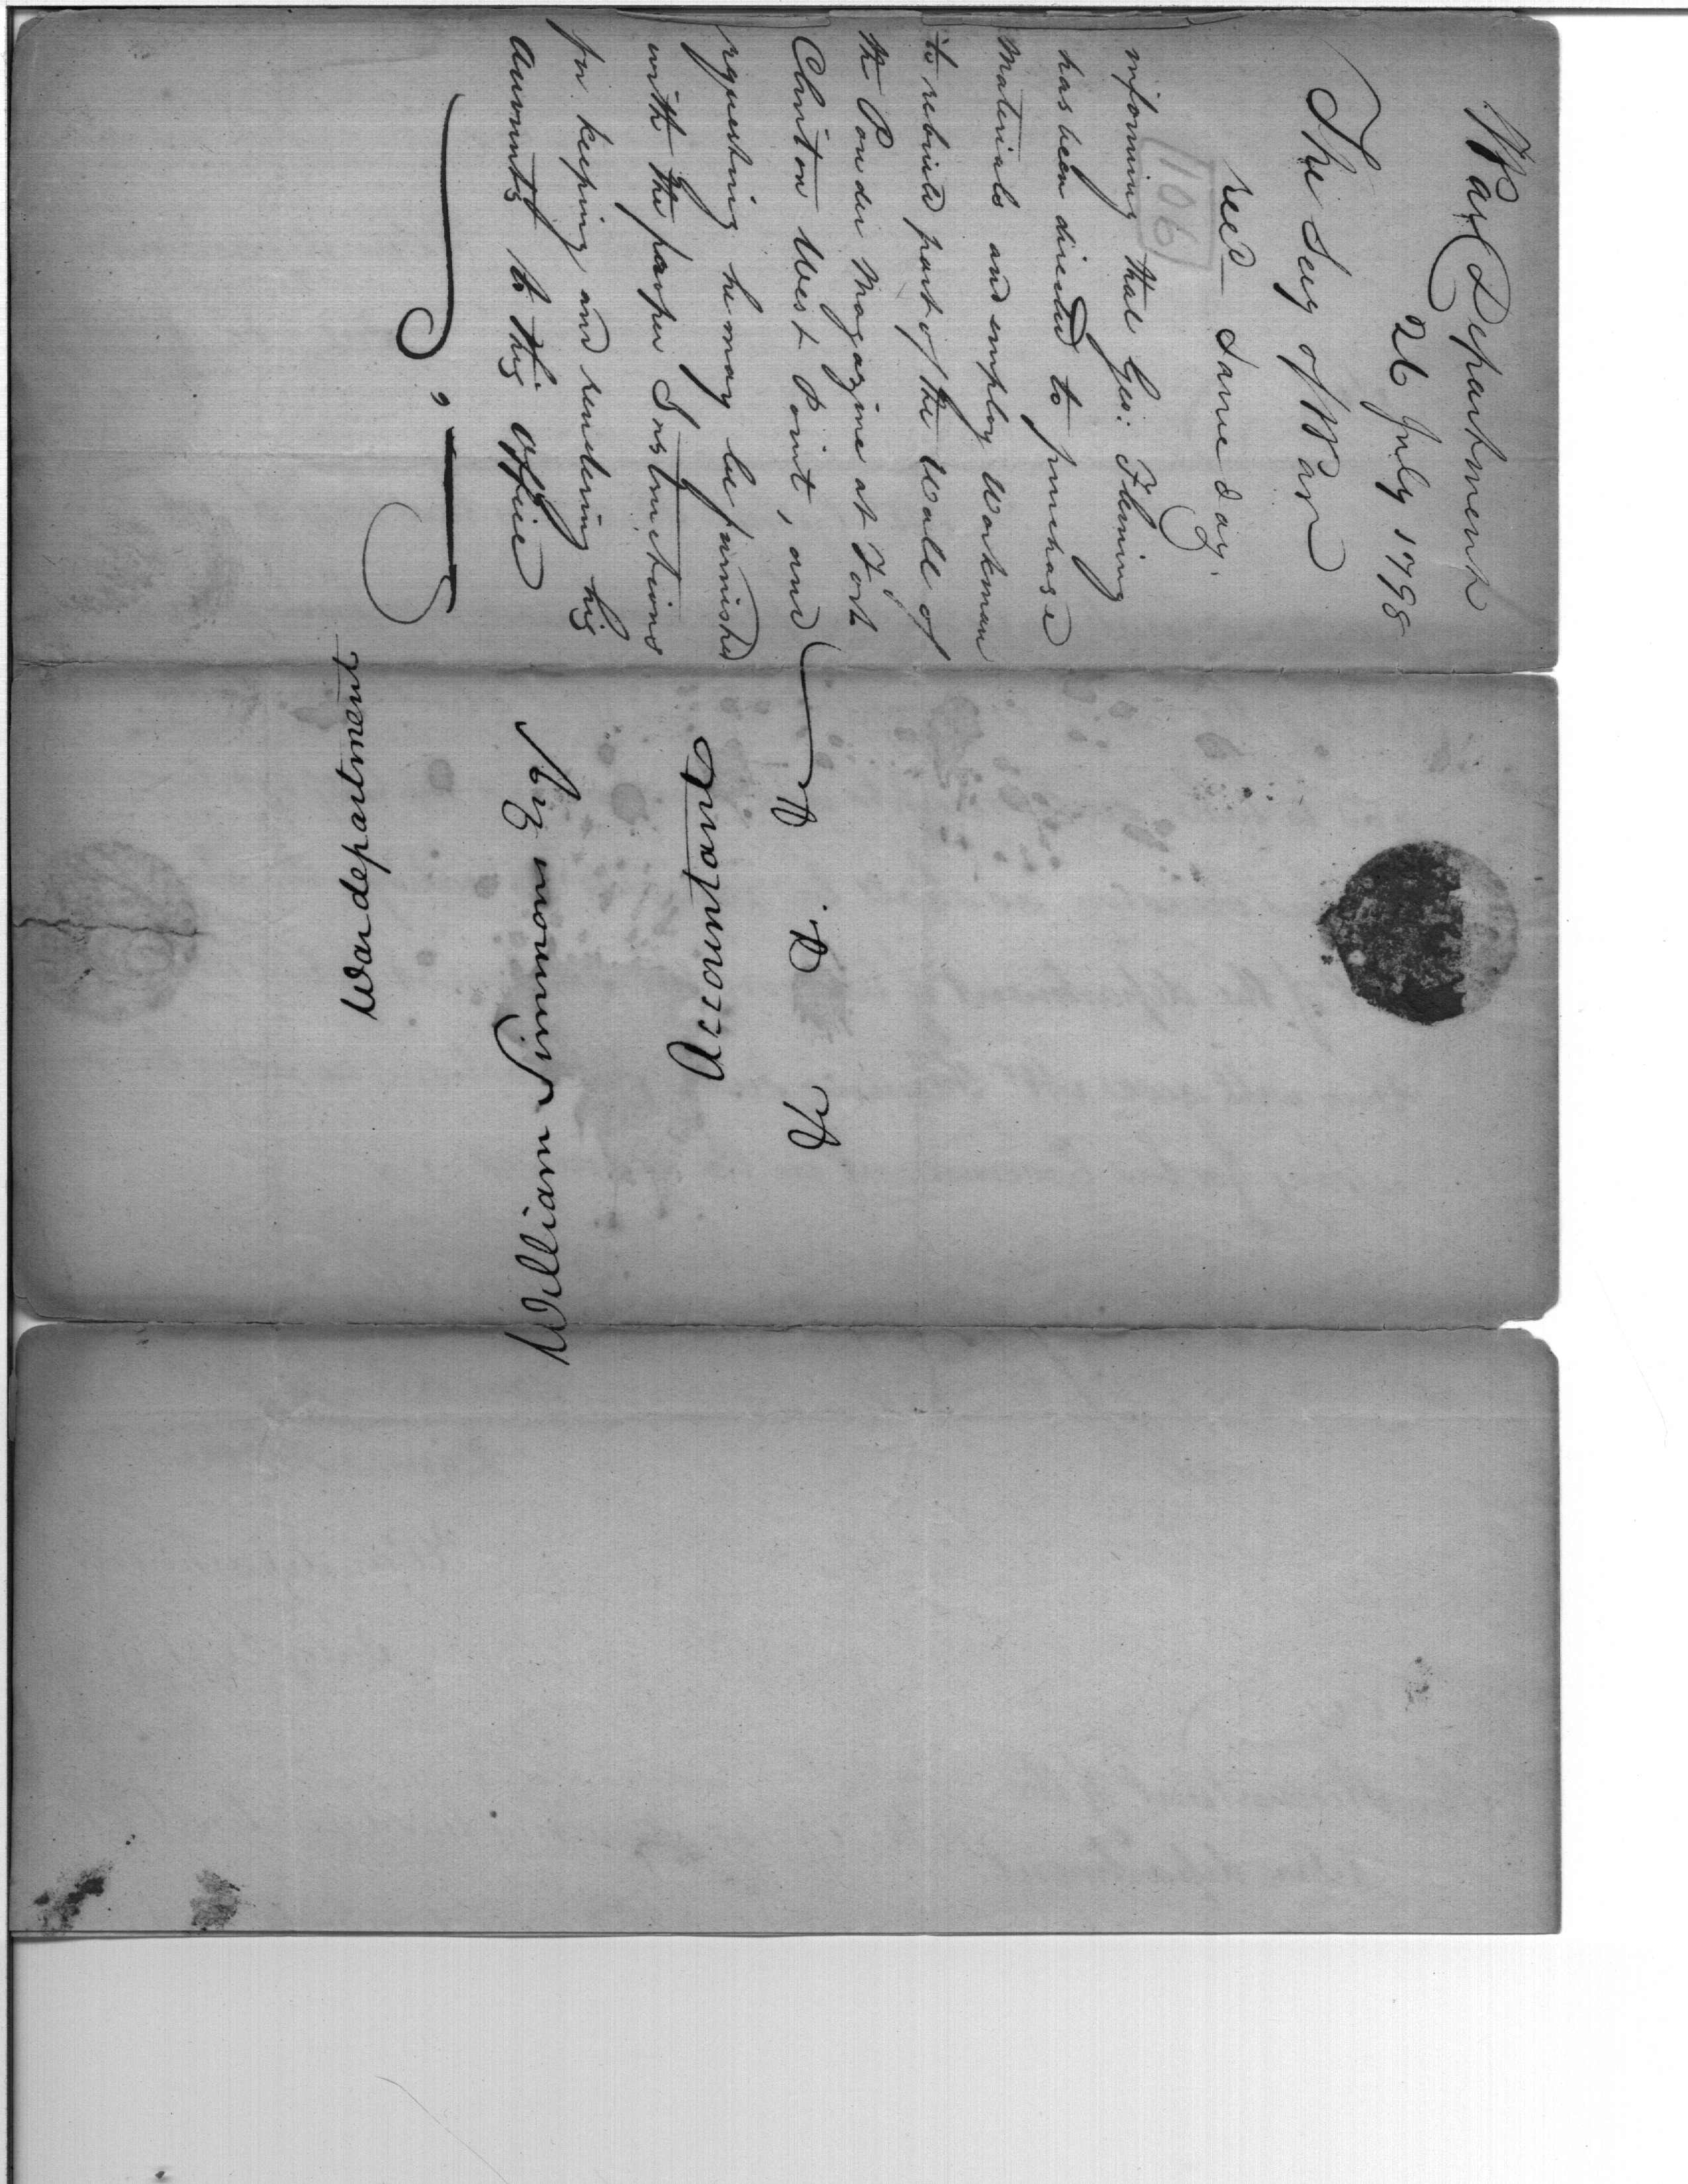 War Department
26 July 1798
The Secy of War
recd — same day.
106
informing that Geo: Fleming
has been directed to purchase
Materials and employ Workman
to rebuild part of the Wall of
the Powder Magazine at Fort
Clinton West Point, and
requesting he may be furnished
with the proper Instructions
for keeping and rendering his
accounts to this office
War department
William Simmons Esq
Accountant